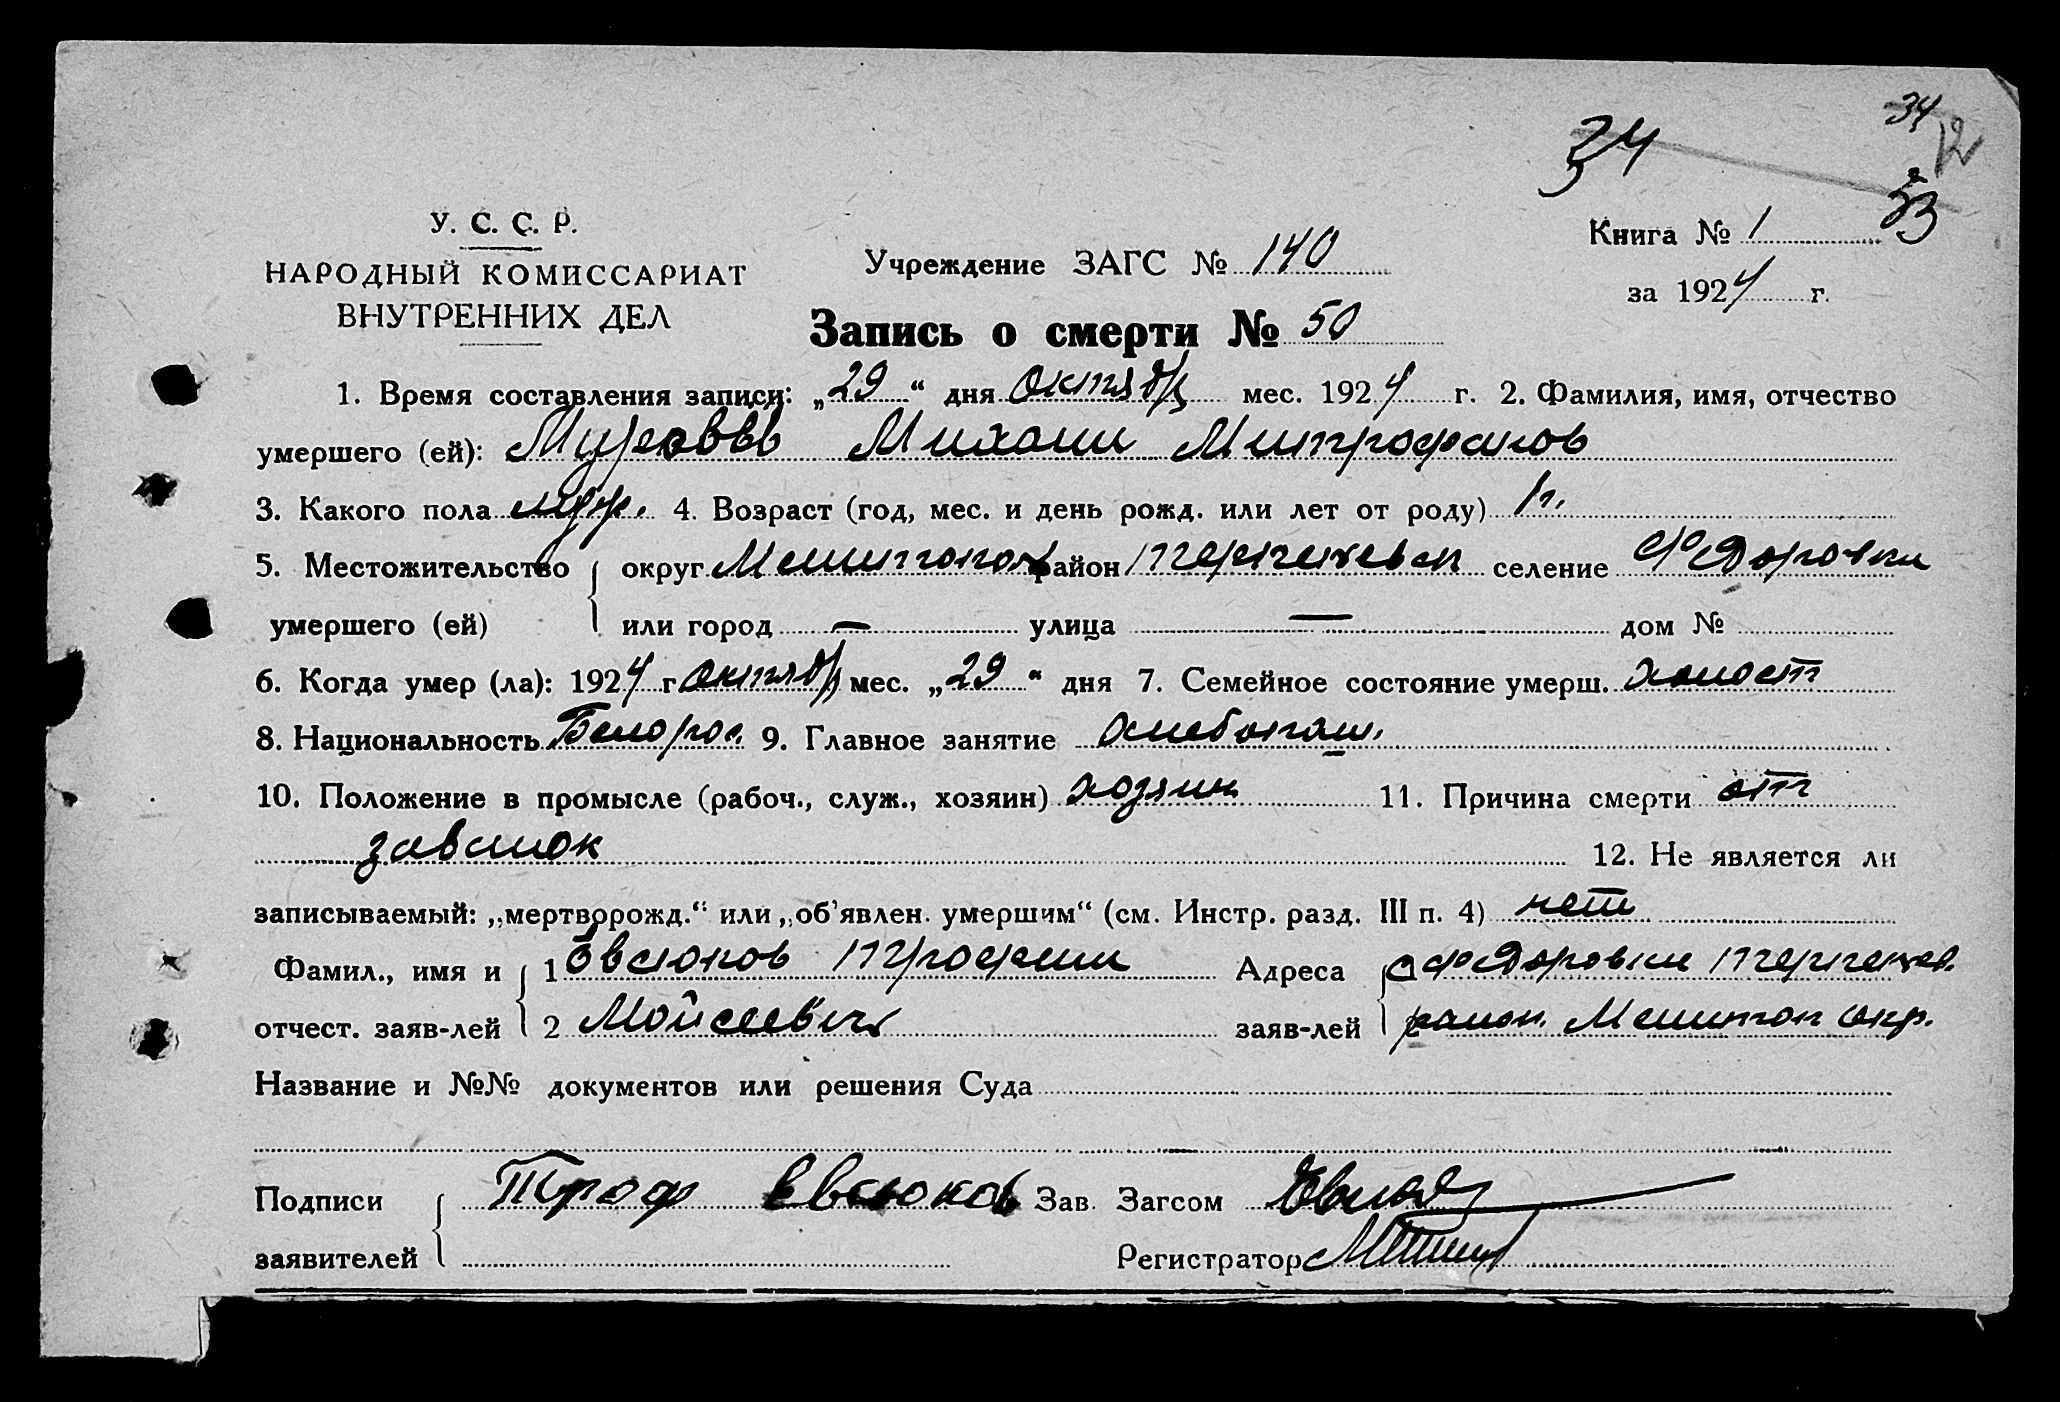 34
34
12
33
У. С. С. Р.
НАРОДНЫЙ КОМИССАРИАТ
ВНУТРЕННИХ ДЕЛ
Учреждение ЗАГС № 140
Книга № 1
за 1924 г.
Запись о смерти № 50
1. Время составления записи: „29“ дня октябр мес. 1924 г. 2. Фамилия, имя, отчество
умершего (ей): Михаил Митрофанов
3. Какого пола муж. 4. Возраст (год, мес. и день рожд. или лет от роду) 1 г.
5. Местожительство округ Мелитопол район селение Федоровки
умершего (ей) или город — улица — дом №
6. Когда умер (ла): 1924 г. октябр мес. „29“ дня 7. Семейное состояние умерш. холост
8. Национальность Белорос. 9. Главное занятие хлебопаш.
10. Положение в промысле (рабоч., служ., хозяин) хозяин 11. Причина смерти от
завалок
12. Не является ли
записываемый: „мертворожд.“ или „об'явлен. умершим“ (см. Инстр. разд. III п. 4) нет
Фамил., имя и 1 Евсюков Трофим Адреса с Федоровки
отчест. заяв-лей 2 Мойсеевич заяв-лей район. Мелитоп окр.
Название и №№ документов или решения Суда
Подписи Троф Евсюков Зав. Загсом
заявителей Регистратор